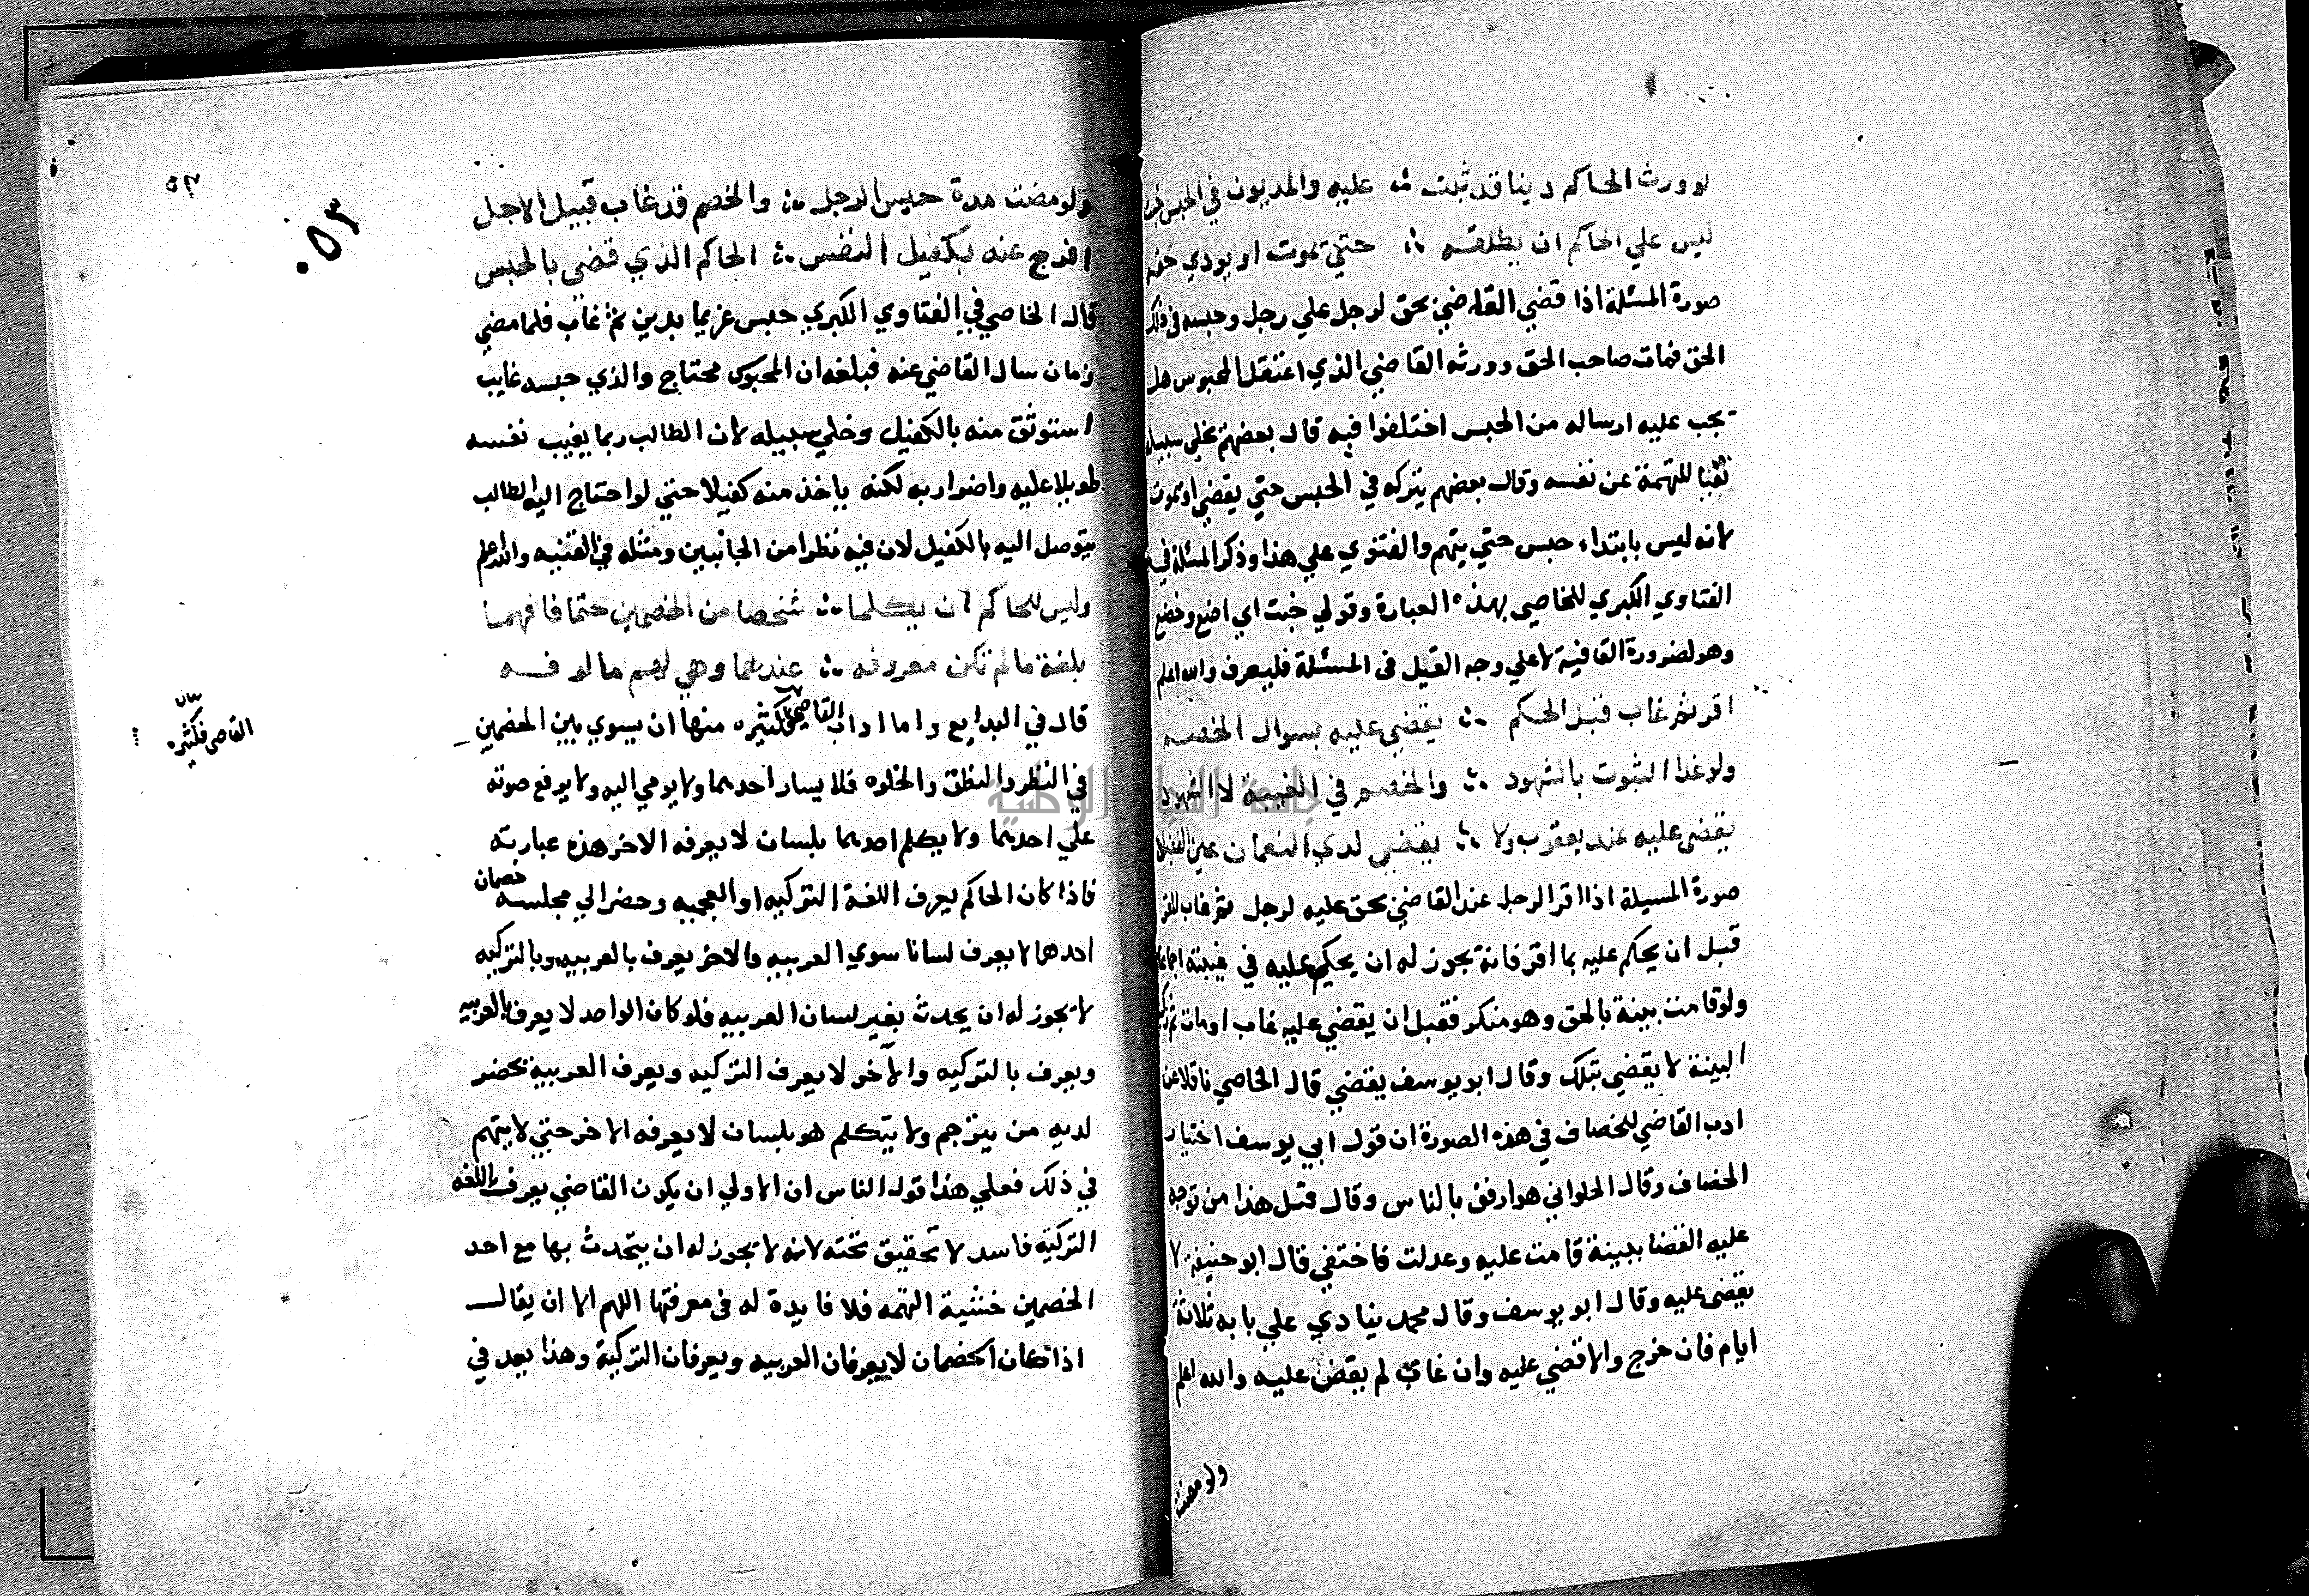 لو ورث الحاكم دينا قد ثبت ∴ عليه والمديون في الحبس
ليس علي الحاكم ان يطلقه ∴ حتي يموت او يودي حقه
صورة المسئلة اذا قضي القاضي بحق لرجل علي رجل وحبسه في ذلك
الحق فمات صاحب الحق وورثه القاضي الذي اعتقل المحبوس هل
يجب عليه ارساله من الحبس اختلفوا فيه قال بعضهم يخلي سبيله
نفيا للتهمة عن نفسه وقال بعضهم يتركه في الحبس حتي يقضي او يموت
لانه ليس بابتداء حبس حتي يتهم والفتوي علي هذا وذكر المسئلة في
الفتاوي الكبري للخاصي بهذه العبارة وقولي
وهو لضرورة القافية لا علي وجه القيل في المسئلة فليعرف والله اعلم
اقر ثم غاب قبل الحكم ∴ يقضي عليه بسوال الخصم
ولو غدا الثبوت بالشهود ∴ والخصم في الغيبة لا الشهود
يقضي عليه عند يعقوب ولا ∴ يقضي لدي النعمان
صورة المسيلة اذا اقر الرجل عند القاضي بحق عليه لرجل ثم غاب المقر
قبل ان يحكم عليه بما اقر فانه يجوز له ان يحكم عليه في غيبته اجماعا
ولو قامت بينة بالحق وهو منكر فقبل ان يقضي عليه غاب او مات ثم زكيت
البينة لا يقضي بتلك وقال ابو يوسف يقضي قال الخاصي ناقلا عن
ادب القاضي للخصاف في هذه الصورة ان قول ابي يوسف اختيار
الخصاف وقال الحلواني هو ارفق بالناس وقال قبل هذا من توجه
عليه القضا ببينة قامت عليه وعدلت فاختفي قال ابو حنيفة لا
يقضي عليه وقال ابو يوسف وقال محمد ينادي علي بابه ثلاثة
ايام فان خرج والا قضي عليه وان غاب لم يقض عليه والله اعلم
ولو مضت
٥٣
٥٣
ولو مضت مدة حبس الرجل ∴ والخصم قد غاب قبيل الاجل
افرج عنه بكفيل النفس ∴ الحاكم الذي قضي بالحبس
قال الخاصي في الفتاوي الكبري حبس غريما بدين ثم غاب فلما مضي
زمان سال القاضي عنه فبلغه ان المحبوس محتاج والذي حبسه غايب
استوثق منه بالكفيل وخلي سبيله لان الطالب ربما يغيب نفسه
طويلا عليه واضرارا به لكنه ياخذ منه كفيلا حتي لو احتاج اليه الطالب
يتوصل اليه بالكفيل لان فيه نظرا من الجانبين ومثله في القنيه والله اعلم
وليس للحاكم ان يكلما ∴ شخصا من الخصمين حتما فافهما
بلغة ما لم تكن معروفه ∴ عندهما وهي لهم مالوفه
قال في البدايع واما اداب القاضي فكثيره منها ان يسوي بين الخصمين
في النظر والنطق والخلوه فلا يسار احدهما ولا يومي اليه ولا يرفع صوته
علي احدهما ولا يكلم احدهما بلسان لا يعرفه الاخر هذه عبارته
فاذا كان الحاكم يعرف اللغة التركيه او العجميه وحضر الي مجلسه خصمان
احدهما لا يعرف لسانا سوي العربيه والاخر يعرف بالعربيه وبالتركيه
لا يجوز له ان يحدث بغير لسان العربيه فلو كان الواحد لا يعرف بالعربيه
ويعرف بالتركيه والاخر لا يعرف التركيه ويعرف العربية يحضر
لديه من يترجم ولا يتكلم هو بلسان لا يعرفه الاخر حتي لا يتهم
في ذلك فعلي هذا قول الناس ان الاولي ان يكون القاضي يعرف باللغه
التركيه فاسد لا تحقيق تحته لانه لا يجوز له ان يتحدث بها مع احد
الخصمين خشية التهمه فلا فايدة له في معرفتها اللهم الا ان يقال
اذا كان الخصمان لا يعرفان العربيه ويعرفان التركية وهذا بعد في
بيان
القاضي فكثيره